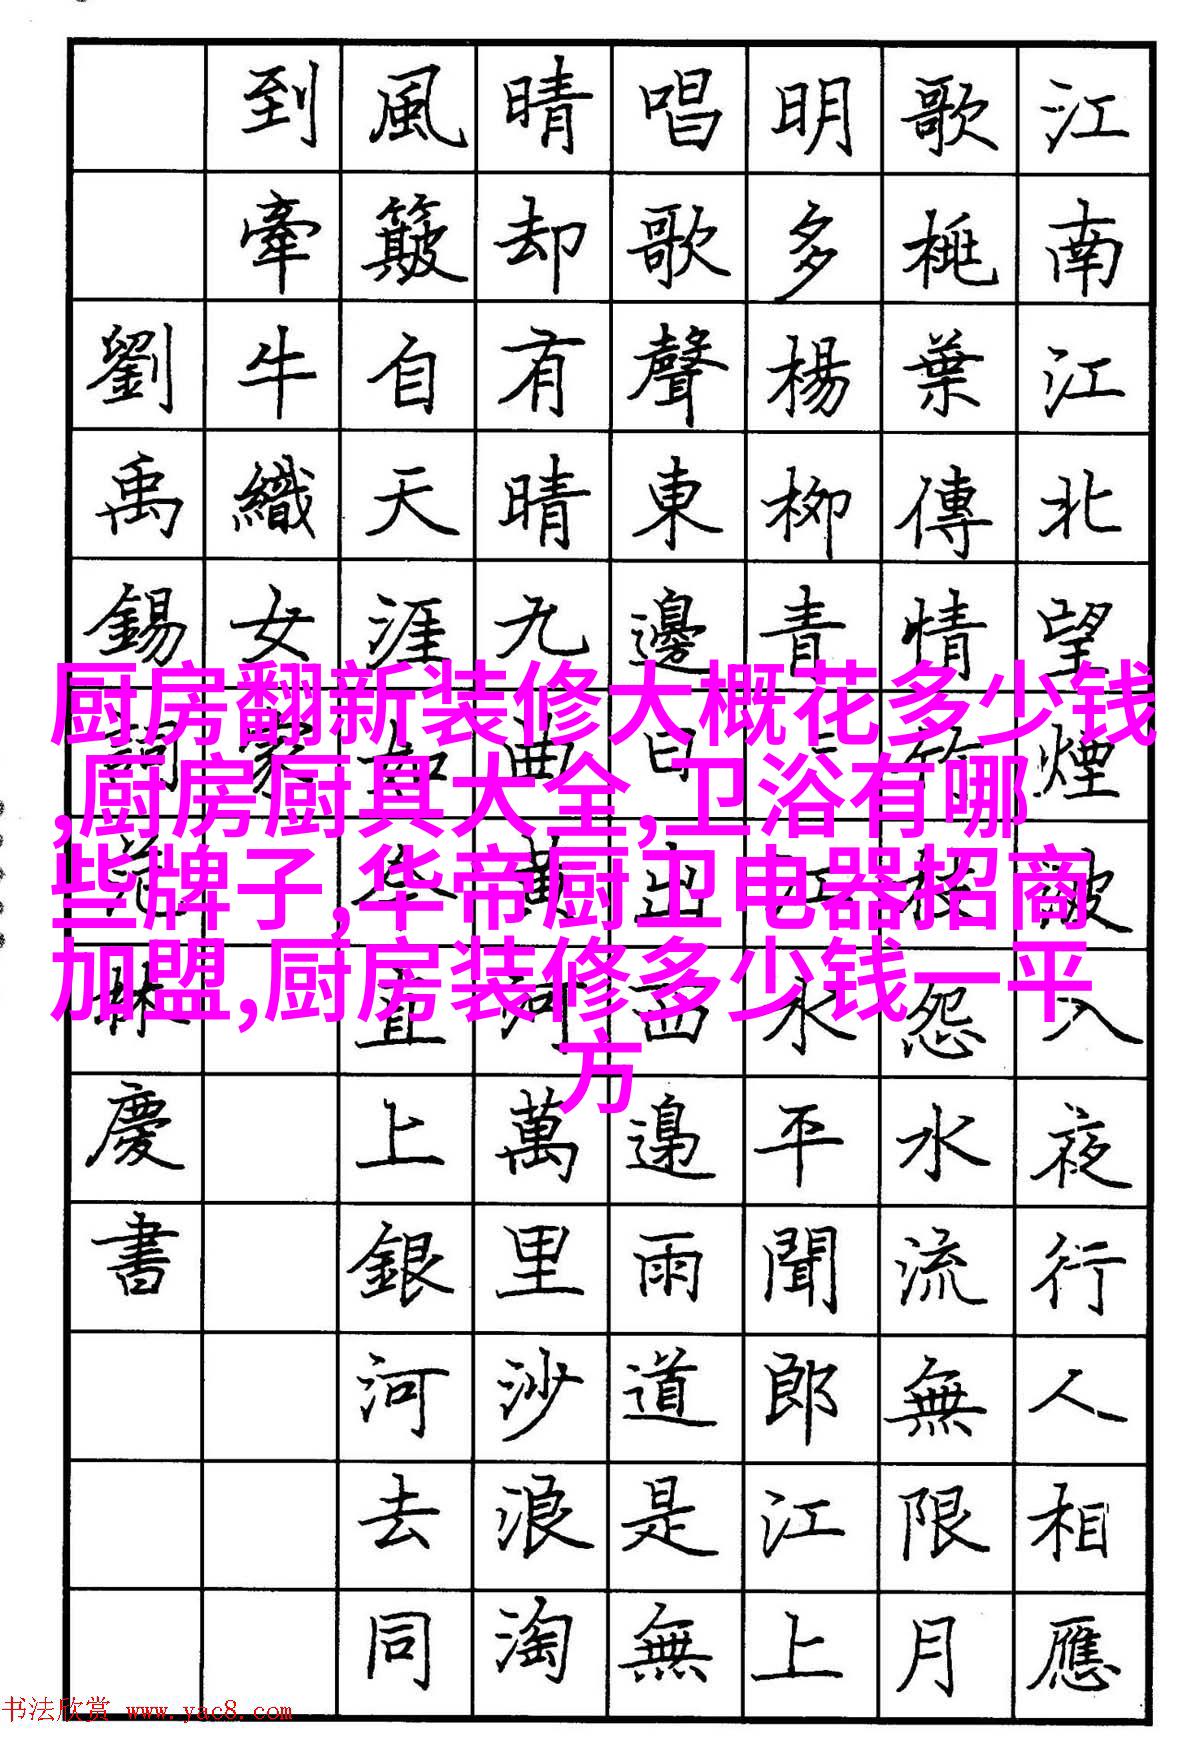 江南江北望煙波入夜行人相應
歌桃葉傳情竹枝怨水流無限月
明多楊柳青青江水平聞郎江上
唱歌聲東邊日出西邊雨道是無
晴却有晴九曲黃河萬里沙浪淘
風簸自天涯如今直上銀河去同
到牽牛織女家
劉禹錫詞林慶書
厨房翻新装修大概花多少钱
,厨房厨具大全,卫浴有哪
些牌子,华帝厨卫电器招商
加盟,厨房装修多少钱一平
方
书法欣赏 www.yac8.com